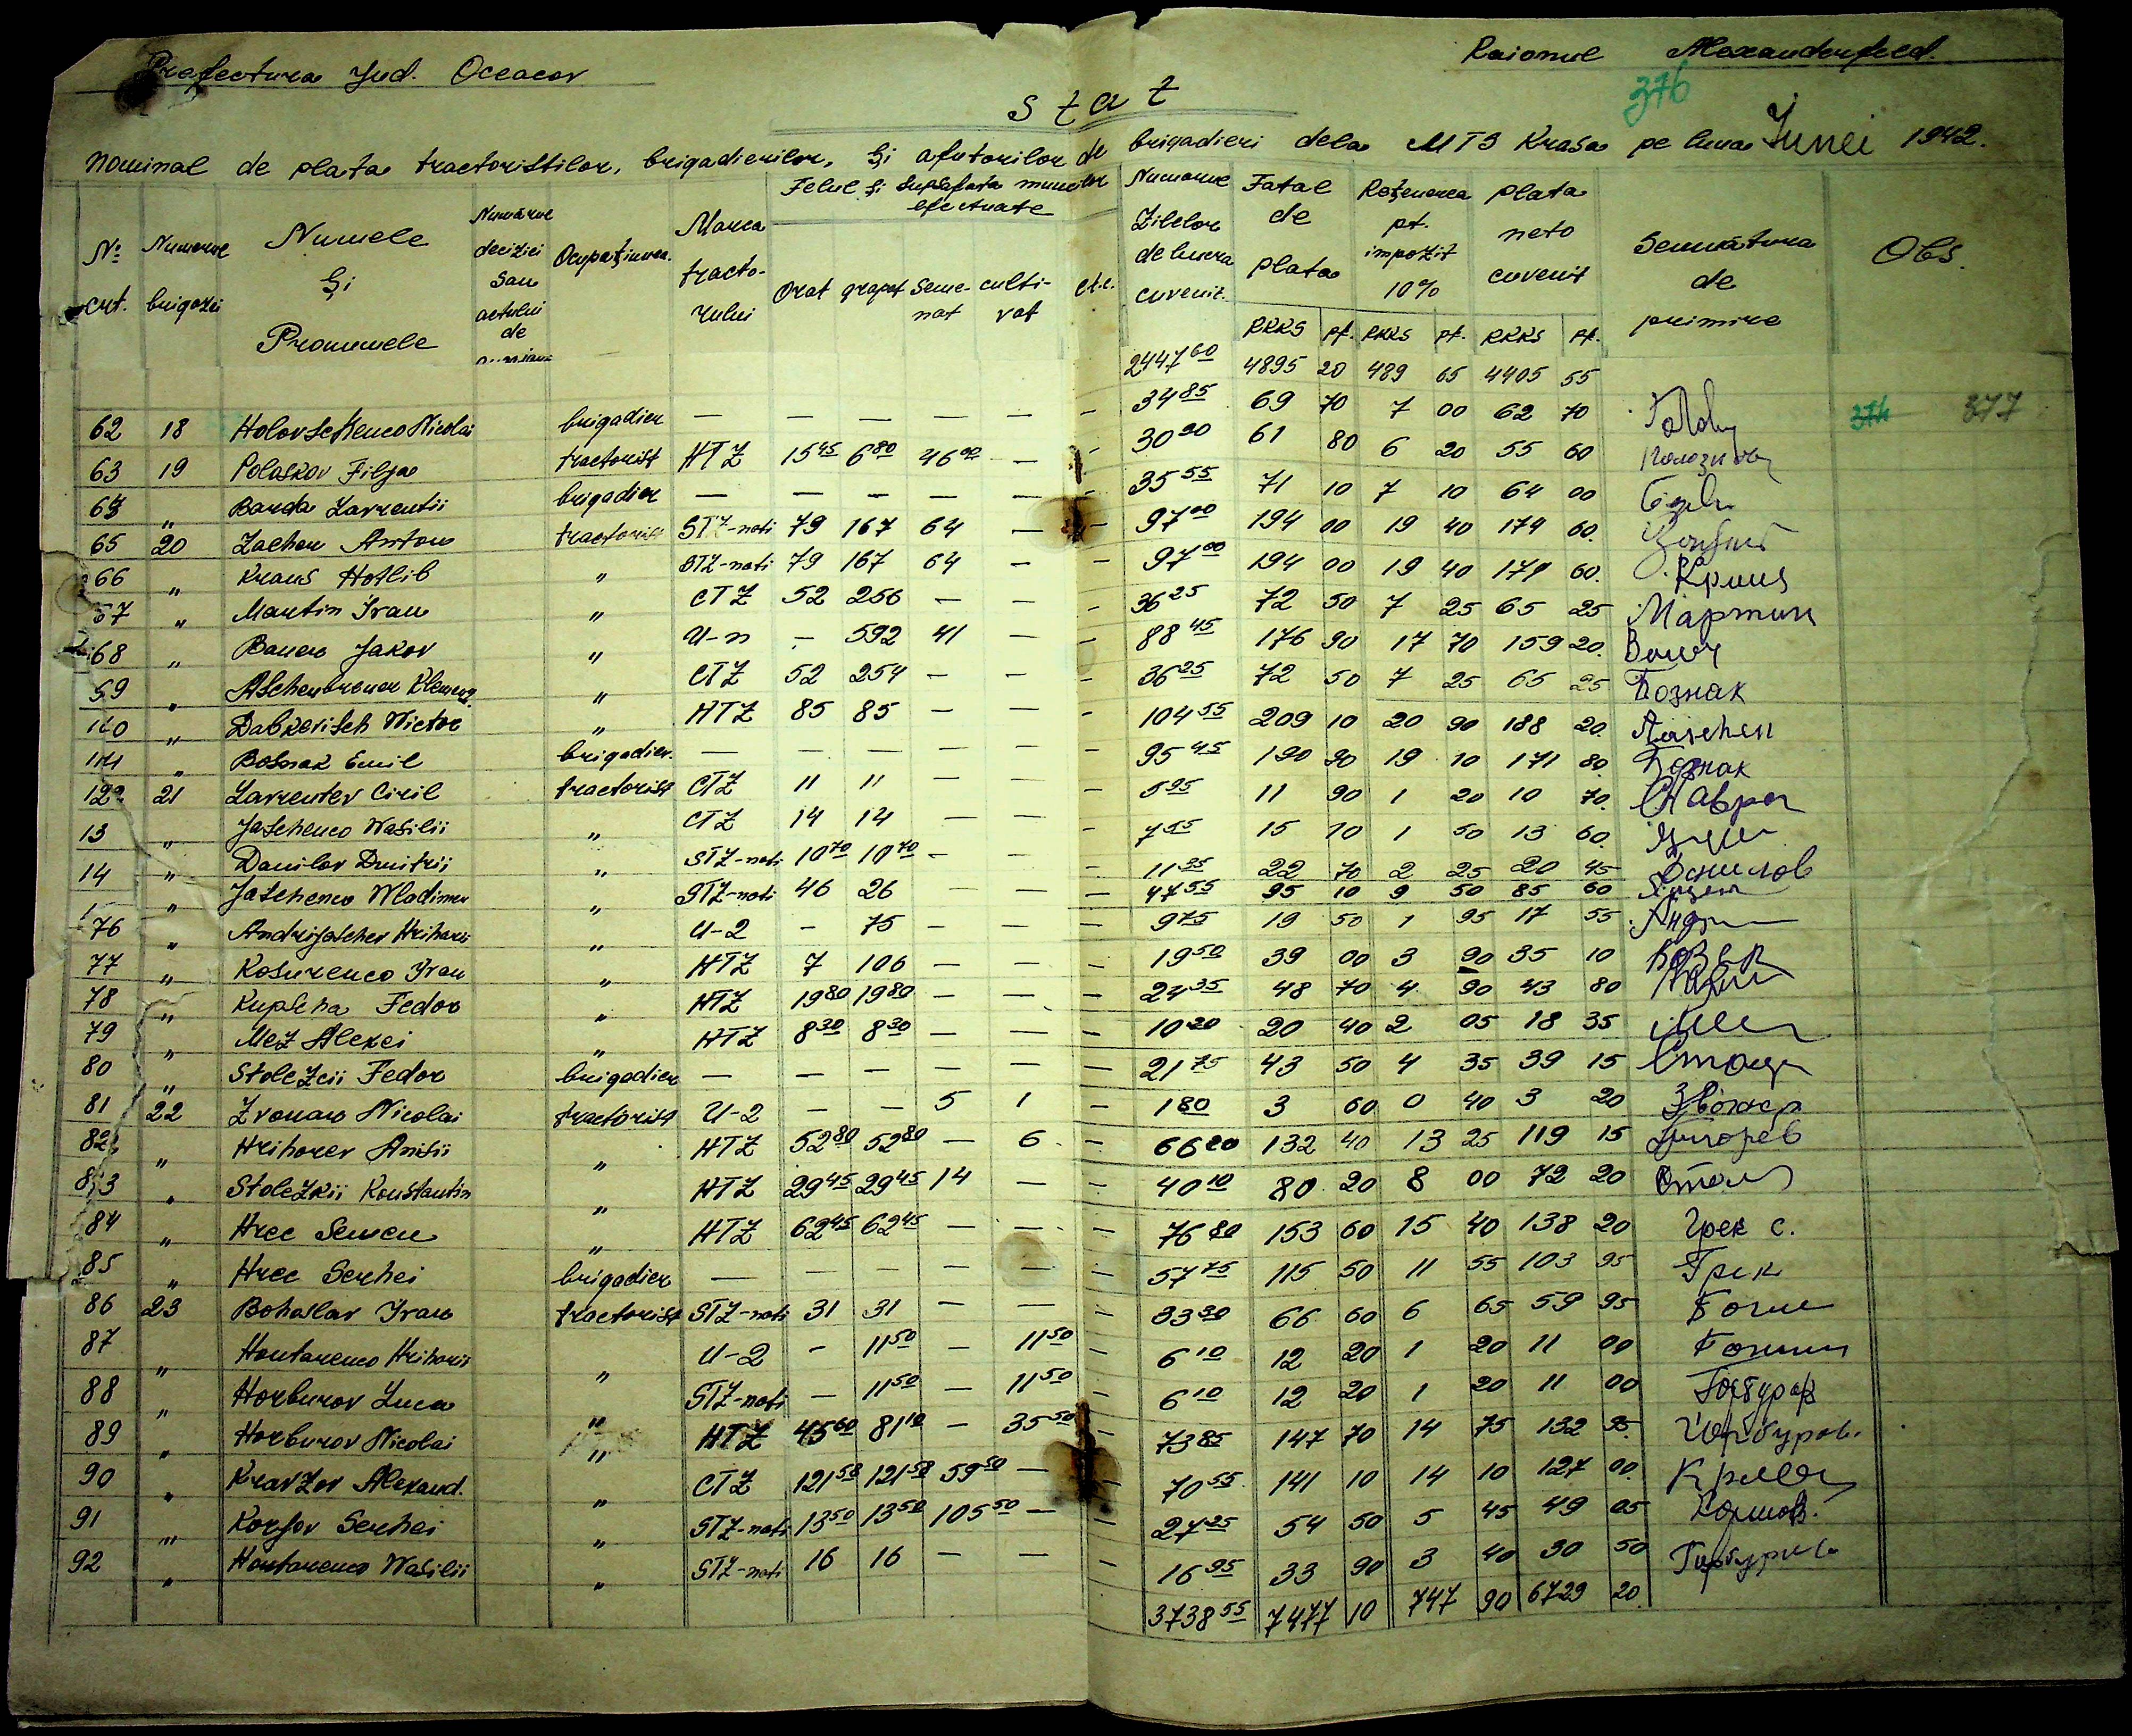 Prefectura Jud. Oceacov
Raionul Alexanderfeld.
376
Stat
Nominal de plata tractoristilor, brigadierilor, și ajutorilor de brigadieri dela MTS Krasa pe luna Iunei 1942.
№ crt. Numerul brigazii Numele și Pronumele Numărul deciziei sau actului de Ocupațiunea. Marca tractorului Felul și suplafata muncilor efectuate Orat grapat Semenat cultivat etc. Numarul Zilelor de lucru cuvenit. Total de plata Rețenerea pt. impozit 10% plata neto cuvenit Semnătura de primire Obs.
RKKS pf. RKKS pf. RKKS pf.
2447 60 4895 20 489 65 4405 55
62 18 Holovschenco Nicolai brigadier — — — — — - 34 85 69 70 7 00 62 70 374 377
63 19 Poloskov Filja tractorist HTZ 15 45 6 80 46 00 — - 30 90 61 80 6 20 55 60
64 " Barda Lavrentii brigadier — — — — — - 35 55 71 10 7 10 64 00
65 20 Zacher Anton tractorist STZ-nati 79 167 64 — - 97 00 194 00 19 40 174 60.
66 " Kraus Hotlib " STZ-nati 79 167 64 — - 97 00 194 00 19 40 174 60.
67 " Martin Ivan " CTZ 52 256 — — - 36 25 72 50 7 25 65 25 Мартин
68 " Bauer Jakov " U-n - 592 41 — - 88 45 176 90 17 70 159 20.
69 " Aschenbrener Klemenz " CTZ 52 254 — — - 36 25 72 50 7 25 65 25 Бознак
" Dabkevitsch Victor " HTZ 85 85 — — - 104 55 209 10 20 90 188 20. Aschen
" Bosnak Emil brigadier. — — — — — - 95 45 190 90 19 10 171 80. Бознак
21 Lavrentev Ciril tractorist CTZ 11 11 — — - 5 95 11 90 1 20 10 70.
13 " Jaschenco Wasilii " CTZ 14 14 — — - 7 55 15 10 1 50 13 60.
14 " Danilov Dmitrii " STZ-nati 10 70 10 70 — — - 11 35 22 70 2 25 20 45 Данилов
" Jaschenco Wladimer " STZ-nati 46 26 — — - 47 55 95 10 9 50 85 60
76 " Andrijaschev Hrihorii " U-2 - 75 — — - 9 75 19 50 1 95 17 55
77 " Kosurenco Ivan " HTZ 7 106 — — - 19 50 39 00 3 90 35 10
78 " Kupscha Fedor " HTZ 19 80 19 80 — — - 24 35 48 70 4 90 43 80
79 " Mez Alexei " HTZ 8 30 8 30 — — - 10 20 20 40 2 05 18 35
80 " Stolezcii Fedor brigadier — — — — — - 21 75 43 50 4 35 39 15
81 22 Zvonar Nicolai tractorist U-2 — — 5 1 - 1 80 3 60 0 40 3 20 Звонар
82 " Hrihorev Anisii " HTZ 52 80 52 80 — 6 - 66 20 132 40 13 25 119 15
83 " Stolezkii Konstantin " HTZ 29 45 29 45 14 — - 40 10 80 20 8 00 72 20
84 " Hrec Semen " HTZ 62 45 62 45 — — - 76 80 153 60 15 40 138 20 Грек с.
85 " Hrec Serhei brigadier — — — — — - 57 75 115 50 11 55 103 95 Грек
86 23 Bohoslav Ivan tractorist STZ-nati 31 31 — — - 33 30 66 60 6 65 59 95
87 " Hontarenco Hrihorii " U-2 - 11 50 — 11 50 - 6 10 12 20 1 20 11 00
88 " Horburov Luca " STZ-nati - 11 50 — 11 50 - 6 10 12 20 1 20 11 00
89 " Horburov Nicolai " HTZ 45 60 81 10 — 35 50 - 73 85 147 70 14 75 132 95.
90 " Kravzov Alexand. " CTZ 121 50 121 50 59 50 — - 70 55 141 10 14 10 127 00.
91 " Korjov Serhei " STZ-nati 13 50 13 50 105 50 — - 27 25 54 50 5 45 49 05
92 " Hontarenco Wasilii " STZ-nati 16 16 — — - 16 95 33 90 3 40 30 50
3738 55 7477 10 747 90 6729 20.